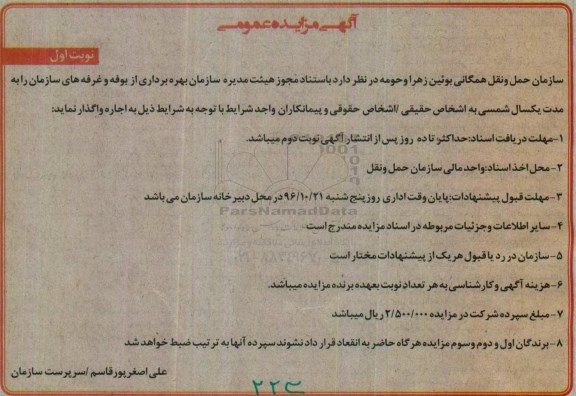 آگهی مزایده عمومی
نوبت اول
سازمان حمل ونقل همگانی بوئین زهرا وحومه در نظر دارد باستناد مجوز هیئت مدیره سازمان بهره برداری از بوفه و غرفه های سازمان را به
مدت یکسال شمسی به اشخاص حقیقی /اشخاص حقوقی و پیمانکاران واجد شرایط با توجه به شرایط ذیل به اجاره واگذار نماید:
۱-مهلت دریافت اسناد:حداکثر تا ده روز پس از انتشار آگهی نوبت دوم میباشد.
۲-محل اخذ اسناد:واحد مالی سازمان حمل ونقل
۳-مهلت قبول پیشنهادات:پایان وقت اداری روز پنج شنبه ۹۶/۱۰/۲۱ در محل دبیرخانه سازمان می باشد
ParsNamadData
۴-سایر اطلاعات وجزئیات مربوطه در اسناد مزایده مندرج است
۵-سازمان در رد یا قبول هر یک از پیشنهادات مختار است
۶-هزینه آگهی و کارشناسی به هر تعداد نوبت بعهده برنده مزایده میباشد.
۷-مبلغ سپرده شرکت در مزایده ۲/۵۰۰/۰۰۰ ریال میباشد
۸-برندگان اول و دوم وسوم مزایده هرگاه حاضر به انقعاد قرار داد نشوند سپرده آنها به ترتیب ضبط خواهد شد
علی اصغر پورقاسم /سرپرست سازمان